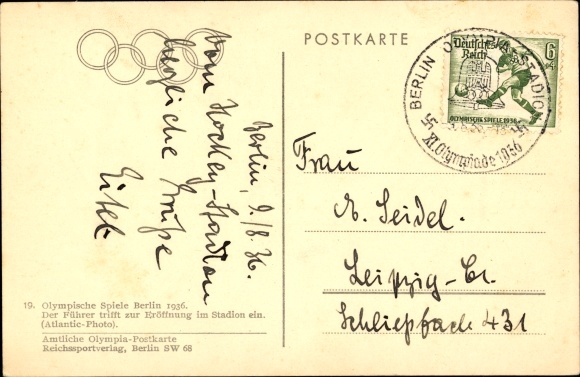 POSTKARTE
Deutsches Reich 6
+4
OLYMPISCHE SPIELE 1936
BERLIN OLYMPIA-STADION
XI. Olympiade 1936
Berlin, 9./8.36.
Vom Hockey-Stadion
herzliche Grüße
Frau
A. Seidel.
Leipzig-C1.
Schließfach 431
19. Olympische Spiele Berlin 1936.
Der Führer trifft zur Eröffnung im Stadion ein.
(Atlantic-Photo).
Amtliche Olympia-Postkarte
Reichssportverlag, Berlin SW 68